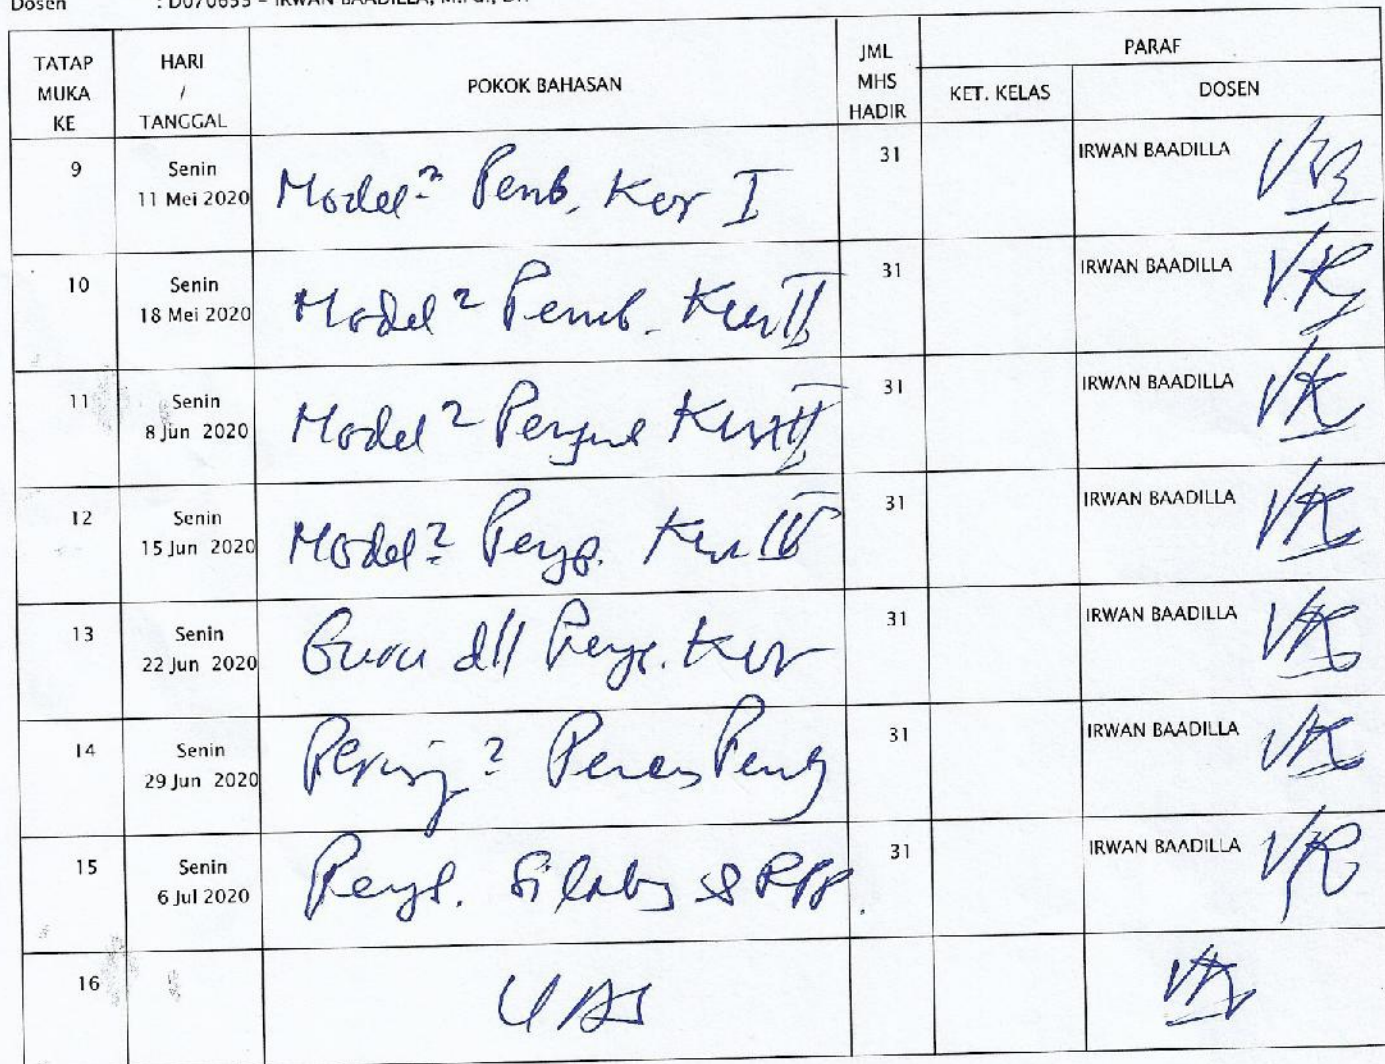 Dosen : D070655 - IRWAN BAADILLA, M.Pd., Dr.
TATAP MUKA KE
HARI / TANGGAL
POKOK BAHASAN
JML MHS HADIR
PARAF
KET. KELAS
DOSEN
9 Senin 11 Mei 2020 Model² Pemb. Kur I 31 IRWAN BAADILLA
10 Senin 18 Mei 2020 Model² Pemb. Kur II 31 IRWAN BAADILLA
11 Senin 8 Jun 2020 Model² 31 IRWAN BAADILLA
12 Senin 15 Jun 2020 Model² Peng. Kur IV 31 IRWAN BAADILLA
13 Senin 22 Jun 2020 Guru dll Peng. Kur 31 IRWAN BAADILLA
14 Senin 29 Jun 2020 31 IRWAN BAADILLA
15 Senin 6 Jul 2020 Peng. Silabus & RPP. 31 IRWAN BAADILLA
16 UAS